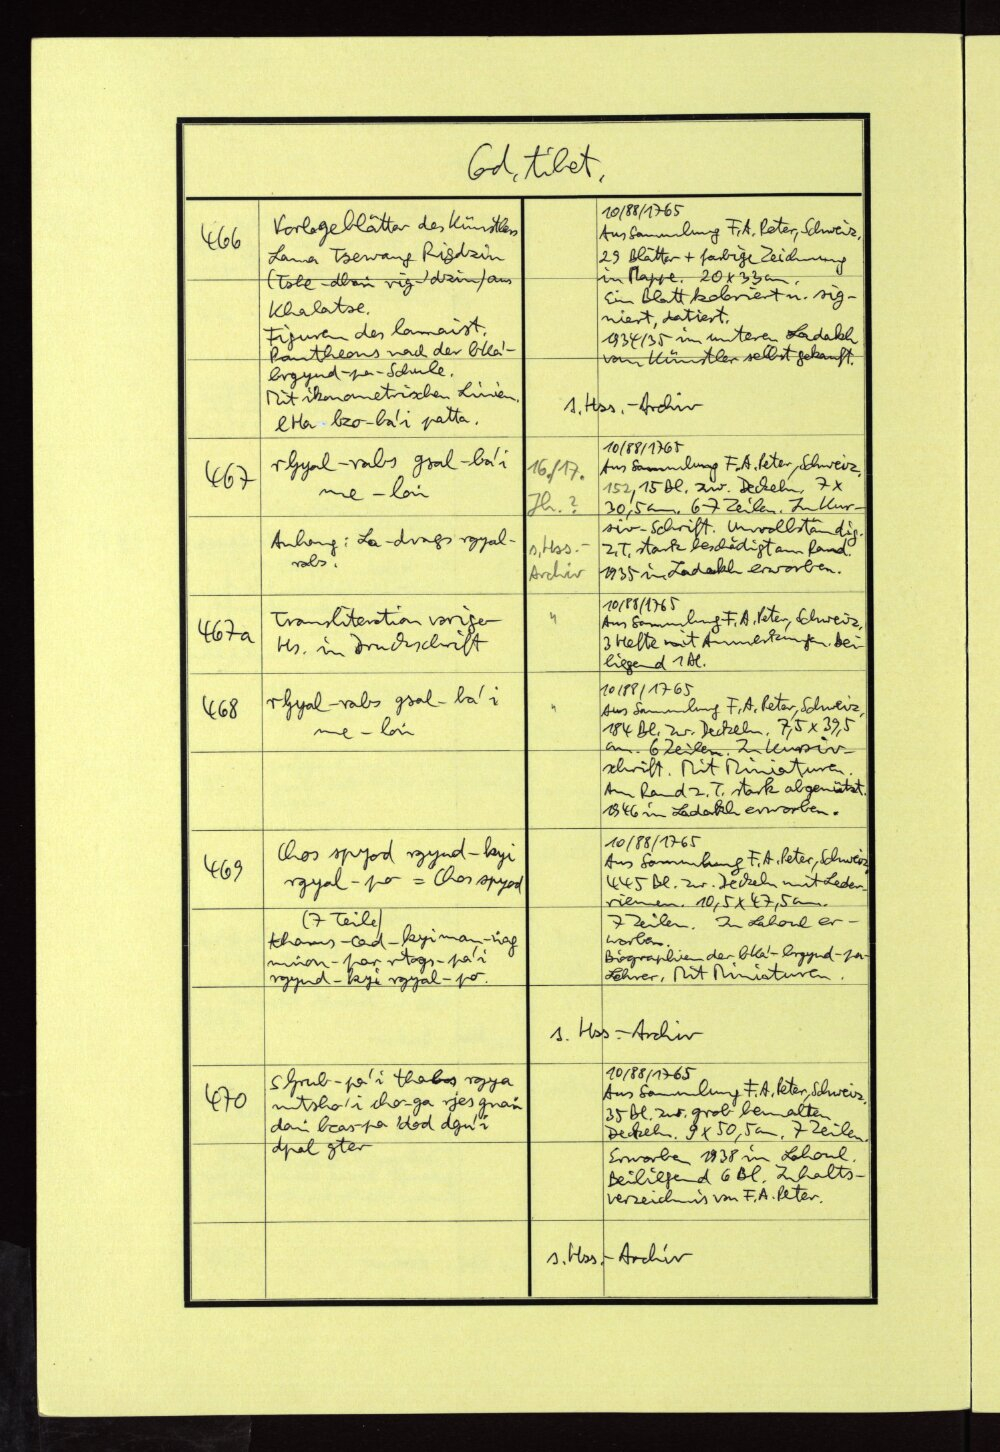 Cod. tibet.
466
Vorlageblätter des Künstlers
Lama Tsewang Rigdzin
(Tshe-dbaṅ rig-'dzin) aus
Khalatse.
Figuren des lamaist.
Pantheons nach der bKa'-
brgyud-pa-Schule.
Mit ikonometrischen Linien.
lHa bzo-ba'i patta.
10/88/1765
Aus Sammlung F.A. Peter, Schweiz,
29 Blätter + farbige Zeichnung
in Mappe. 20 x 33 cm.
Ein Blatt koloriert u. sig-
niert, datiert.
1934/35 im unteren Ladakh
vom Künstler selbst gekauft.
s. Hss.-Archiv
467
rGyal-rabs gsal-ba'i
me-loṅ
Anhang: La-dvags rgyal-
rabs.
16./17.
Jh. ?
s. Hss.-
Archiv
10/88/1765
Aus Sammlung F.A. Peter, Schweiz,
152, 15 Bl. zw. Deckeln. 7 x
30,5 cm. 6-7 Zeilen. In Kur-
siv-Schrift. Unvollständig.
Z.T. stark beschädigt am Rand.
1935 in Ladakh erworben.
467a
Transliteration voriger
Hs. in Druckschrift
"
10/88/1765
Aus Sammlung F.A. Peter, Schweiz,
3 Hefte mit Anmerkungen. Bei-
liegend 1 Bl.
468
rGyal-rabs gsal-ba'i
me-loṅ
"
10/88/1765
Aus Sammlung F.A. Peter, Schweiz,
184 Bl. zw. Deckeln. 7,5 x 39,5
cm. 6 Zeilen. In Kursiv-
schrift. Mit Miniaturen.
Am Rand z.T. stark abgenützt.
1946 in Ladakh erworben.
469
Chos spyod rgyud-kyi
rgyal-po = Chos spyod
(7 Teile)
thams-cad-kyi man-ṅag
mṅon-par rtogs-pa'i
rgyud-kyi rgyal-po.
10/88/1765
Aus Sammlung F.A. Peter, Schweiz
445 Bl. zw. Deckeln mit Leder-
riemen. 10,5 x 47,5 cm.
7 Zeilen. In Lahoul er-
worben.
Biographien der bKa'-brgyud-pa-
Lehrer, Mit Miniaturen.
s. Hss.-Archiv
470
sGrub-pa'i thabs rgya
mtsho'i cho-ga rjes gnaṅ
daṅ bcas-pa 'dod dgu'i
dpal gter
10/88/1765
Aus Sammlung F.A. Peter, Schweiz,
35 Bl. zw. grob bemalten
Deckeln. 9 x 50,5 cm. 7 Zeilen.
Erworben 1938 in Lahoul.
Beiliegend 6 Bl. Inhalts-
verzeichnis von F.A. Peter.
s. Hss.-Archiv